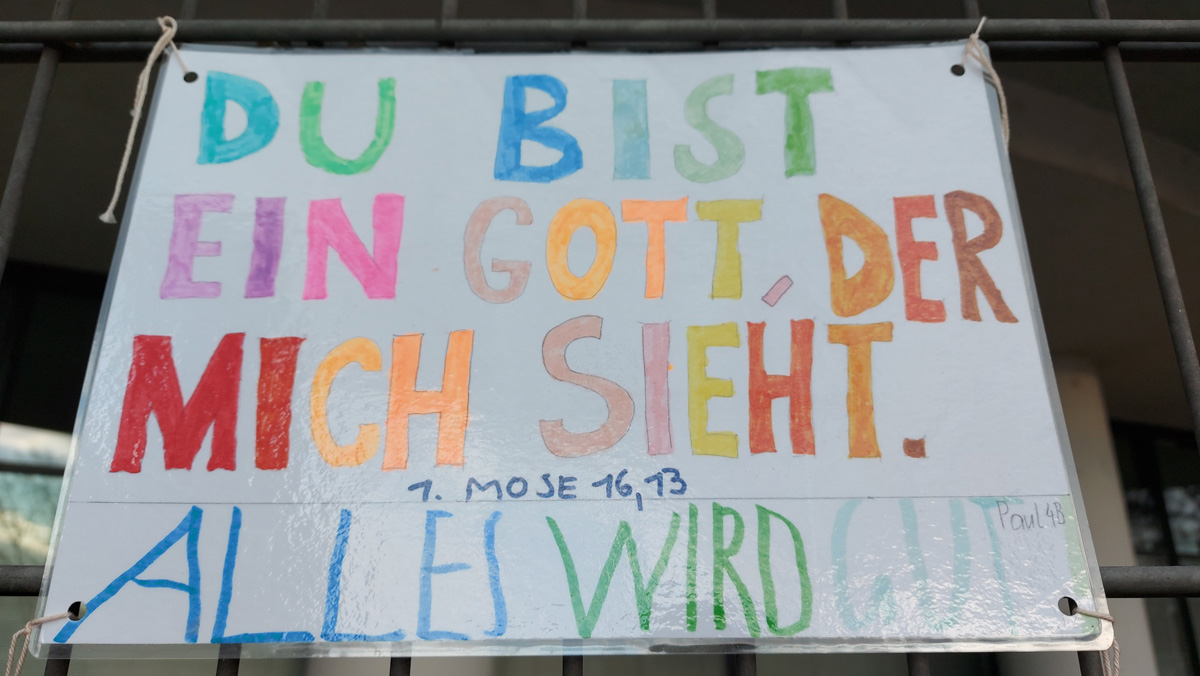 DU BIST
EIN GOTT, DER
MICH SIEHT.
1. MOSE 16,13
Paul 4B
ALLES WIRD GUT